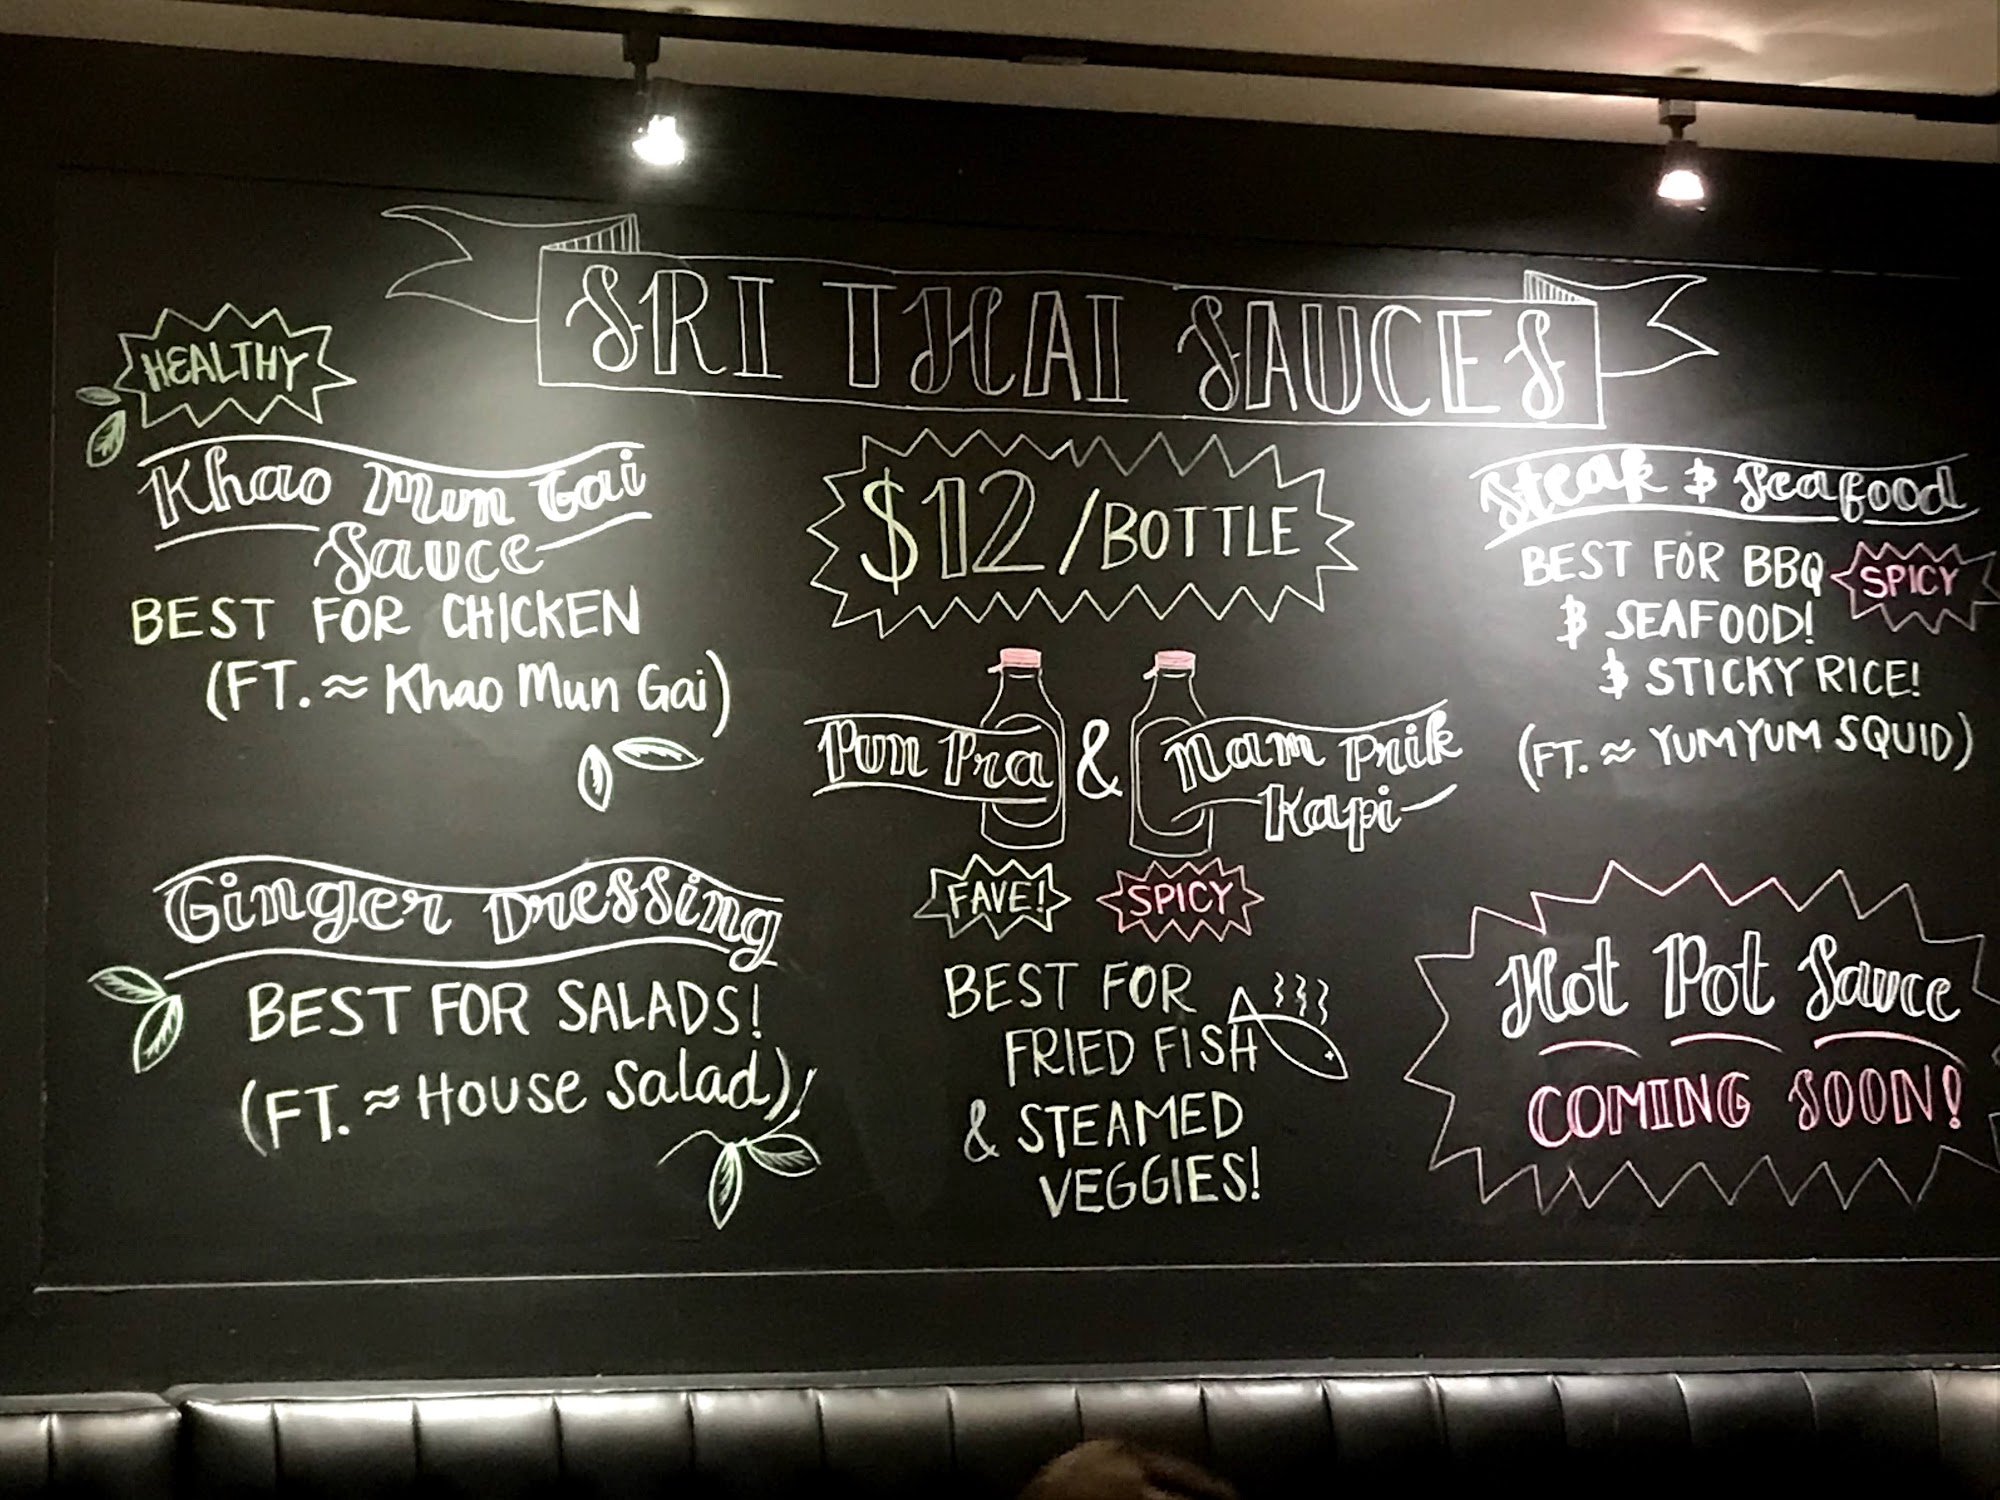 SRI THAI SAUCES
HEALTHY
Khao Mun Gai
Sauce
BEST FOR CHICKEN
(FT. ≈ Khao Mun Gai)
Ginger Dressing
BEST FOR SALADS!
(FT. ≈ House Salad)
$12/BOTTLE
Pun Pra & Nam Prik
Kapi
FAVE! SPICY
BEST FOR
FRIED FISH
& STEAMED
VEGGIES!
Steak & Seafood
BEST FOR BBQ
SPICY
& SEAFOOD!
& STICKY RICE!
(FT. ≈ YUMYUM SQUID)
Hot Pot Sauce
COMING SOON!